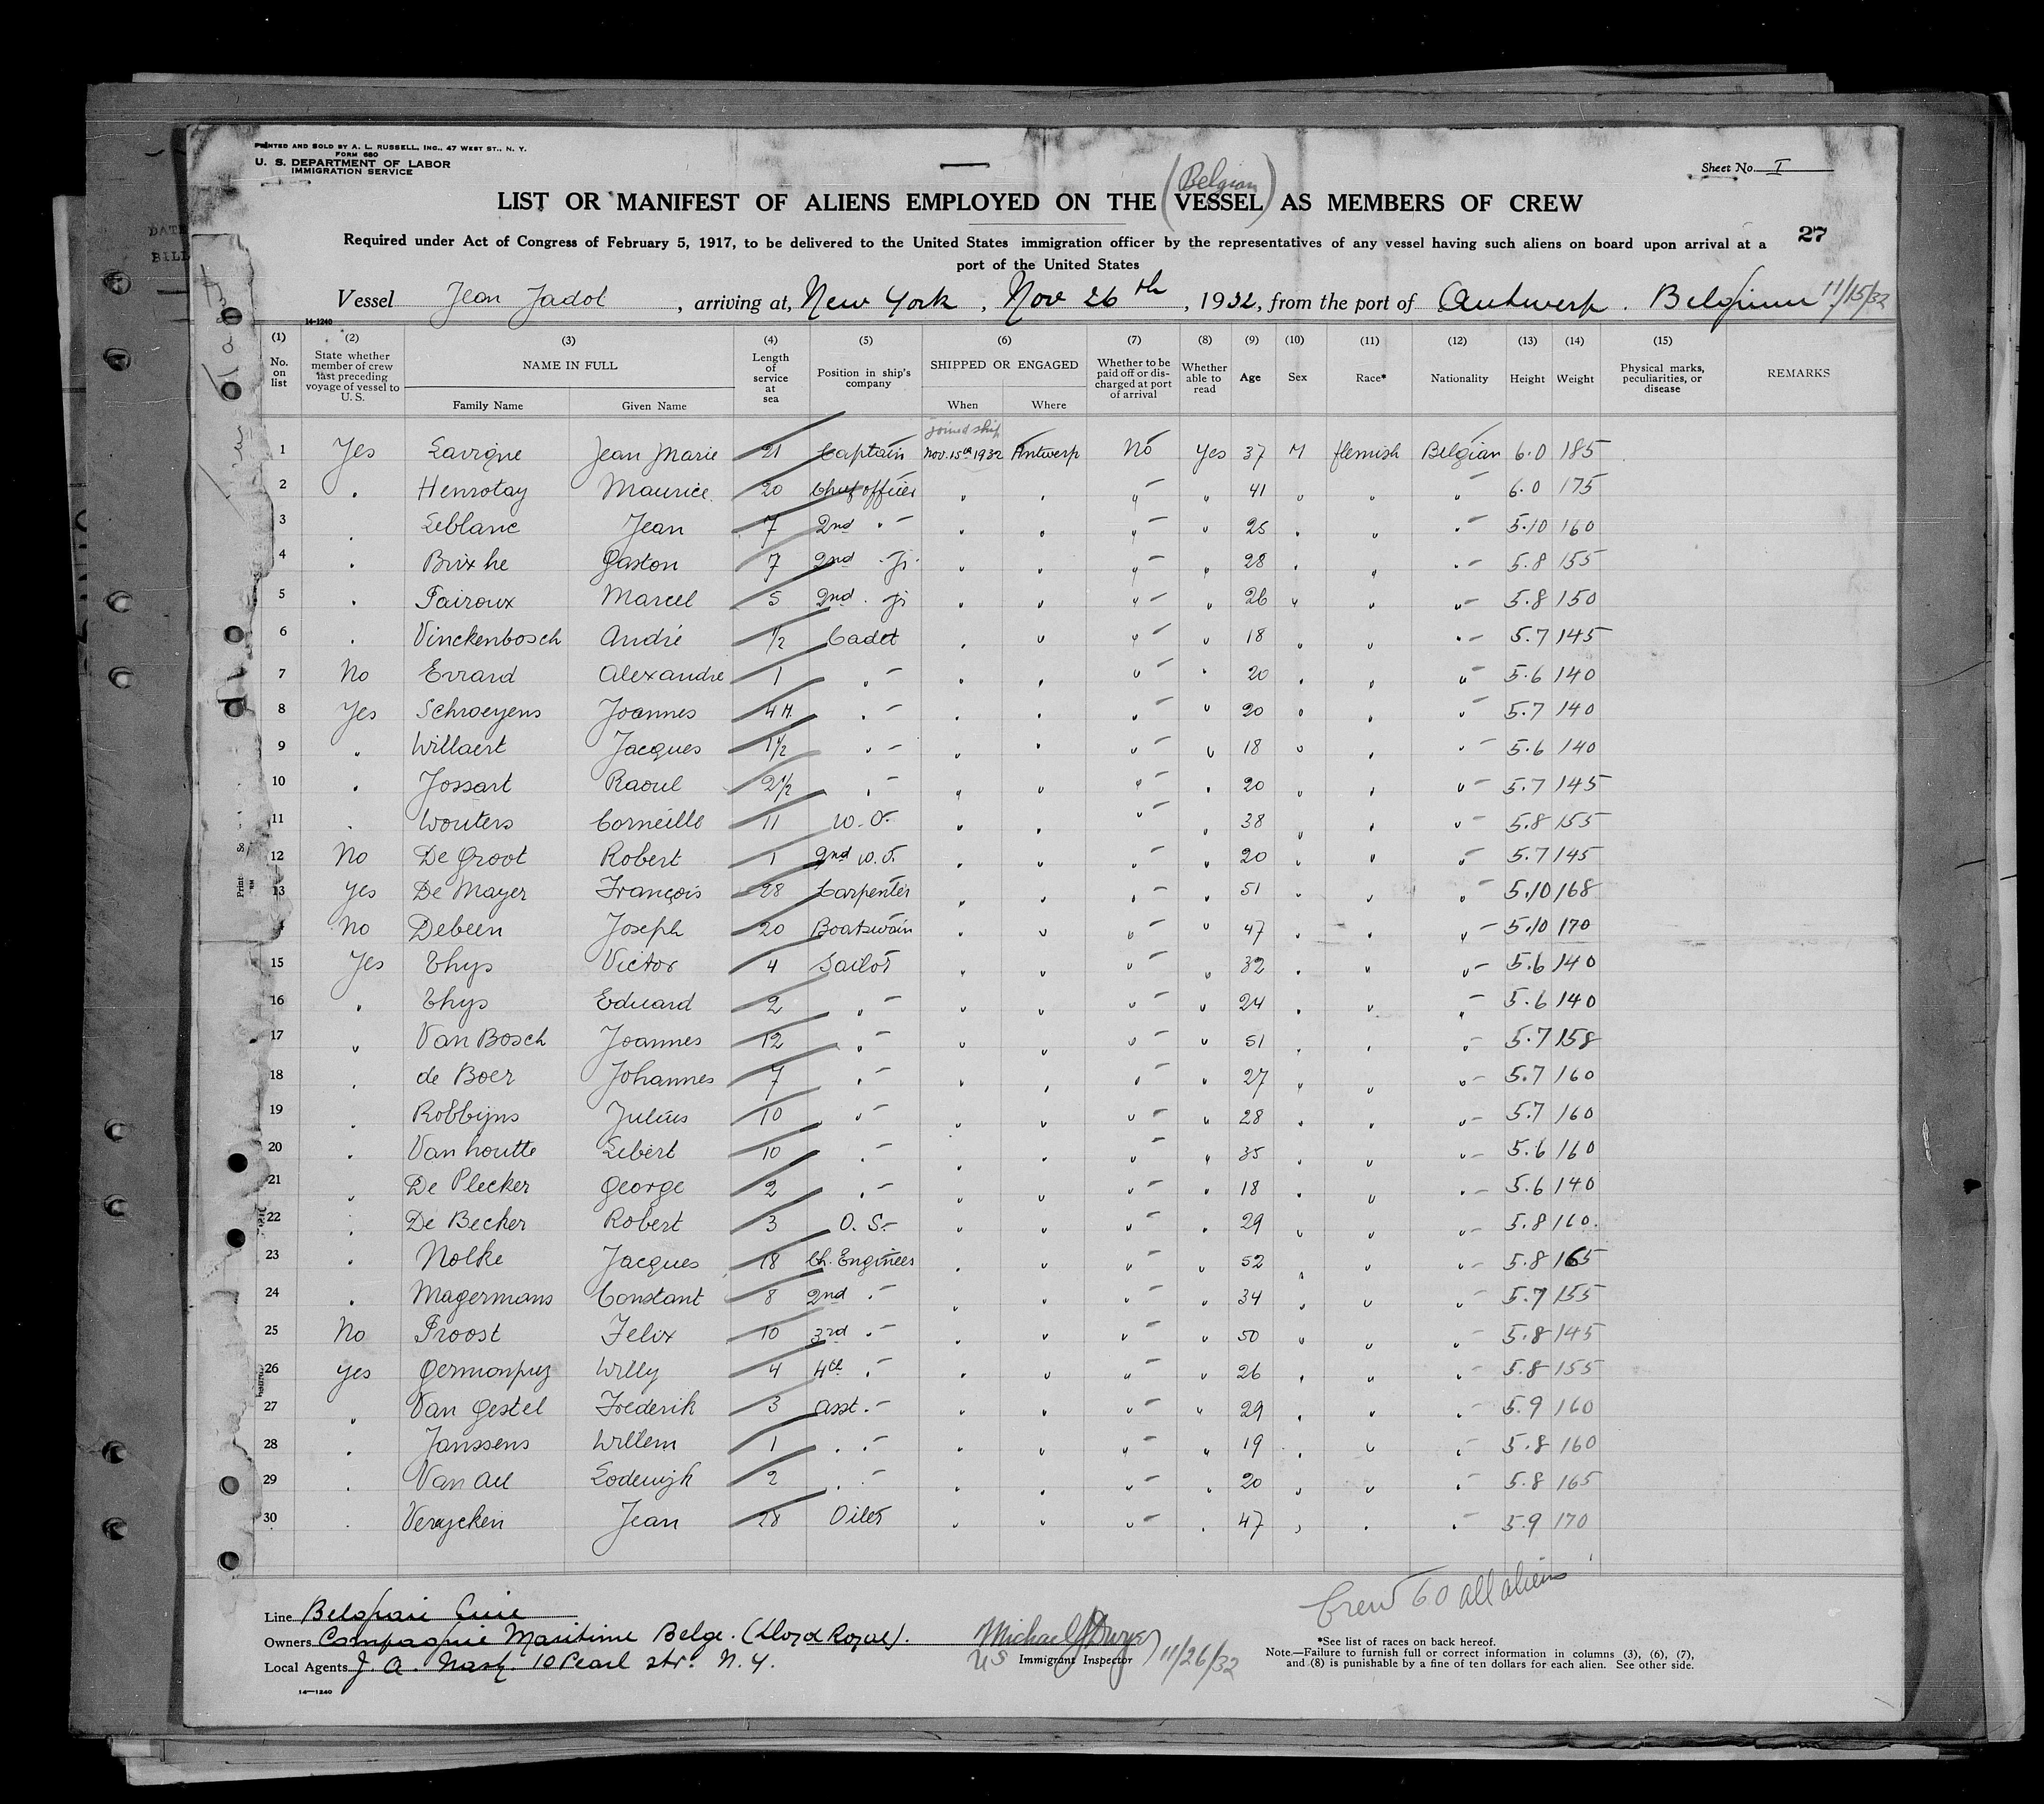 PRINTED AND SOLD BY A. L. RUSSELL, INC., 47 WEST ST., N. Y.
FORM 680
U. S. DEPARTMENT OF LABOR
IMMIGRATION SERVICE
Sheet No. I
(Belgian)
LIST OR MANIFEST OF ALIENS EMPLOYED ON THE VESSEL AS MEMBERS OF CREW
27
Required under Act of Congress of February 5, 1917, to be delivered to the United States immigration officer by the representatives of any vessel having such aliens on board upon arrival at a
port of the United States
Vessel Jean Jadot, arriving at, New York, Nov 26th, 1932, from the port of Antwerp. Belgium 11/15/32
14-1240
(1) (2) (3) (4) (5) (6) (7) (8) (9) (10) (11) (12) (13) (14) (15)
No. on list State whether member of crew last preceding voyage of vessel to U. S. NAME IN FULL Length of service at sea Position in ship's company SHIPPED OR ENGAGED Whether to be paid off or discharged at port of arrival Whether able to read Age Sex Race* Nationality Height Weight Physical marks, peculiarities, or disease REMARKS
Family Name Given Name When Where
joined ship
1 Yes Lavigne Jean Marie 21 Captain Nov. 15th 1932 Antwerp No Yes 37 M flemish Belgian 6.0 185
2 " Henrotay Maurice 20 Chief officer " " " " 41 " " " 6.0 175
3 " Leblanc Jean 7 2nd " " " " " 25 " " " 5.10 160
4 " Brixhe Gaston 7 2nd " Jr. " " " " 28 " " " 5.8 155
5 " Fairoux Marcel 5 2nd " Jr " " " " 26 " " " 5.8 150
6 " Vinckenbosch André 1/2 Cadet " " " " 18 " " " 5.7 145
7 No Errard Alexandre 1 " " " " " 20 " " " 5.6 140
8 Yes Schroeyens Joannes 4 M. " " " " " 20 " " " 5.7 140
9 " Willaert Jacques 1 1/2 " " " " " 18 " " " 5.6 140
10 " Jossart Raoul 2 1/2 " " " " " 20 " " " 5.7 145
11 " Wouters Corneille 11 W.O. " " " " 38 " " " 5.8 155
12 No De Groot Robert 1 2nd W.O. " " " " 20 " " " 5.7 145
13 Yes De Mayer François 28 Carpenter " " " " 51 " " " 5.10 168
No Debeen Joseph 20 Boatswain " " " " 47 " " " 5.10 170
15 Yes Thys Victor 4 Sailor " " " " 32 " " " 5.6 140
16 " Thys Eduard 2 " " " " " 24 " " " 5.6 140
17 " Van Bosch Joannes 12 " " " " " 51 " " " 5.7 158
18 " de Boer Johannes 7 " " " " " 27 " " " 5.7 160
19 " Robbijns Julius 10 " " " " " 28 " " " 5.7 160
20 " Van houtte Libert 10 " " " " " 35 " " " 5.6 160
21 " De Plecker George 2 " " " " " 18 " " " 5.6 140
22 " De Becker Robert 3 O. S. " " " " 29 " " " 5.8 160.
23 " Nolke Jacques 18 Ch. Engineer " " " " 52 " " " 5.8 165
24 " Magermans Constant 8 2nd " " " " " 34 " " " 5.7 155
25 No Proost Felix 10 3rd " " " " " 50 " " " 5.8 145
26 Yes Germonprez Willy 4 4th " " " " " 26 " " " 5.8 155
27 " Van Gestel Frederik 3 asst. " " " " " 29 " " " 5.9 160
28 " Janssens Willem 1 " " " " " " 19 " " " 5.8 160
29 " Van Lodewijk 2 " " " " " " 20 " " " 5.8 165
30 " Verycken Jean 28 Oiler " " " " 47 " " " 5.9 170
Crew 60 all aliens
Line Belgian Line
Owners Compagnie Maritime Belge. (Lloyd Royal).
Local Agents J. A. Nash. 10 Pearl str. N. Y.
Michael J Dwyer
US Immigrant Inspector 11/26/32
*See list of races on back hereof.
Note.—Failure to furnish full or correct information in columns (3), (6), (7),
and (8) is punishable by a fine of ten dollars for each alien. See other side.
14—1240